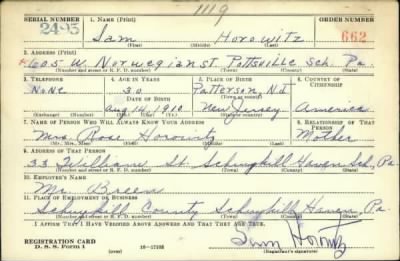 1119
SERIAL NUMBER 1. NAME (Print) ORDER NUMBER
2495 Sam Horowitz 662
(First) (Middle) (Last)
2. ADDRESS (Print)
605 W. Norwegian St Pottsville Sch. Pa.
(Number and street or R. F. D. number) (Town) (County) (State)
3. TELEPHONE 4. AGE IN YEARS 5. PLACE OF BIRTH 6. COUNTRY OF CITIZENSHIP
None 30 Patterson, N.J
DATE OF BIRTH (Town or county)
Aug 14, 1910 New Jersey America
(Exchange) (Number) (Mo.) (Day) (Yr.) (State or country)
7. NAME OF PERSON WHO WILL ALWAYS KNOW YOUR ADDRESS 8. RELATIONSHIP OF THAT PERSON
Mrs. Rose Horowitz Mother
(Mr., Mrs., Miss) (First) (Middle) (Last)
9. ADDRESS OF THAT PERSON
33 William St. Schuylkill Haven Sch. Pa.
(Number and street or R. F. D. number) (Town) (County) (State)
10. EMPLOYER'S NAME
Mr.
11. PLACE OF EMPLOYMENT OR BUSINESS
Schuylkill County Schuylkill Haven, Pa.
(Number and street or R. F. D. number) (Town) (County) (State)
I AFFIRM THAT I HAVE VERIFIED ABOVE ANSWERS AND THAT THEY ARE TRUE.
REGISTRATION CARD
D. S. S. Form 1 (over) 16—17105 Sam Horowitz
(Registrant's signature)